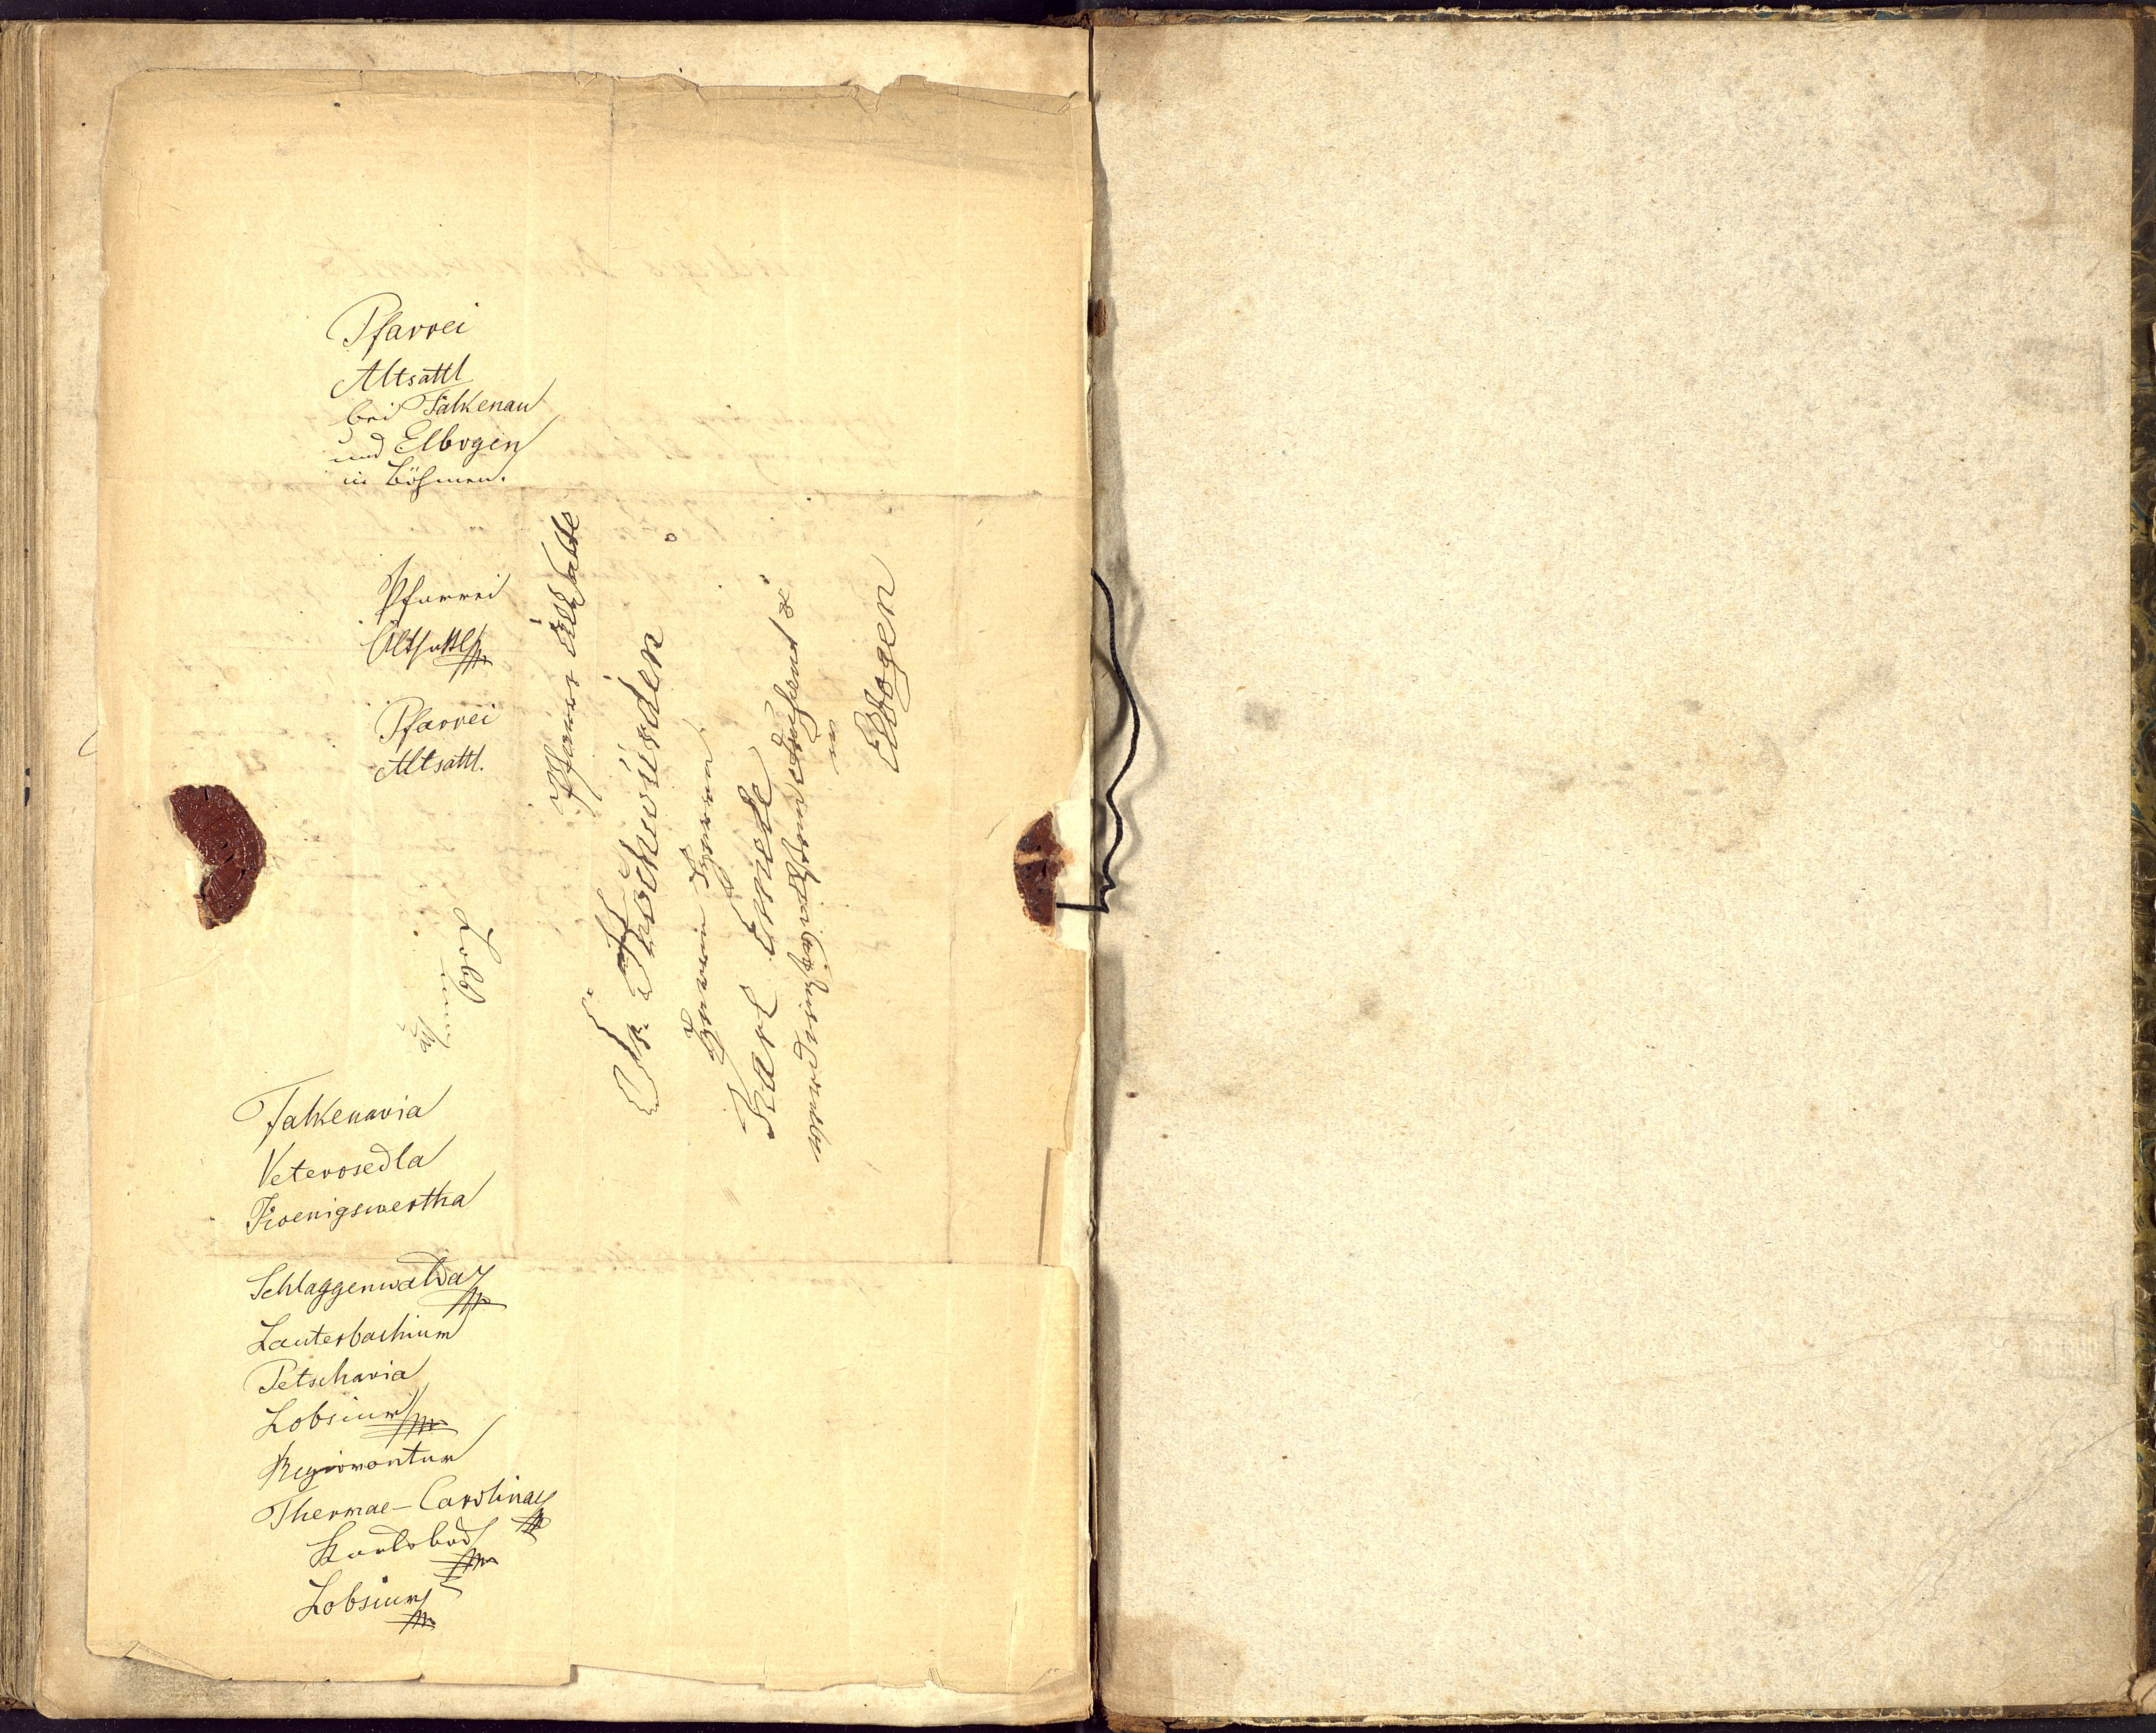 Pfarrei
Altsattl
bei Falkenau
und Elbogen
in Böhmen.
Pfarrei
Altsattl
Pfarrei
Altsattl.
Pfarre
Sr. Hochwürden
Herrn Herrn
Karl
in
Elbogen
Falkenavia
Veterosedla
Koenigswertha
Schlaggenwalda
Lauterbachium
Petschavia
Lobsium
Regiomontum
Thermae-Carolinae
Karlsbad
Lobsium